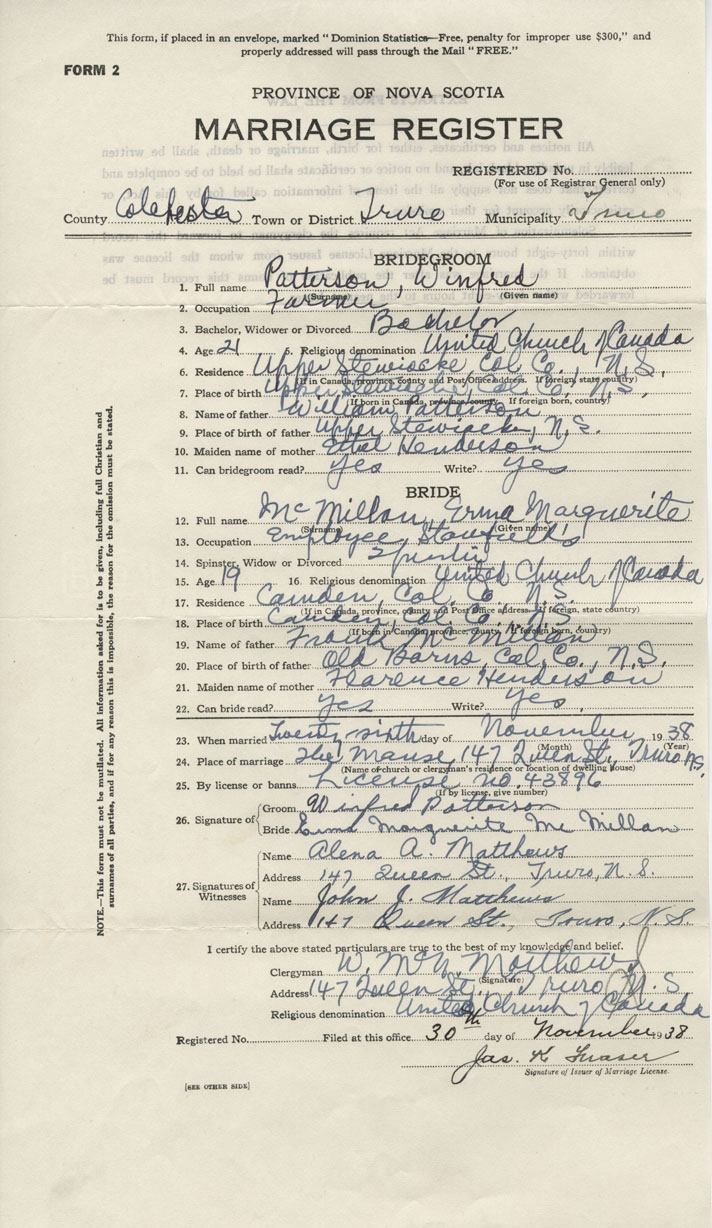 This form, if placed in an envelope, marked "Dominion Statistics—Free, penalty for improper use $300," and
properly addressed will pass through the Mail "FREE."
FORM 2
PROVINCE OF NOVA SCOTIA
MARRIAGE REGISTER
REGISTERED No.
(For use of Registrar General only)
County Colchester Town or District Truro Municipality Truro
BRIDEGROOM
1. Full name Patterson, Winfred
(Surname) (Given name)
2. Occupation Farmer
3. Bachelor, Widower or Divorced Bachelor
4. Age 21 5. Religious denomination United Church of Canada
6. Residence Upper Stewiacke, Col. Co., N.S.
(If in Canada, province, county and Post Office address. If foreign state country)
7. Place of birth Upper Stewiacke, Col. Co., N.S.
(If born in Canada, province, county. If foreign born, country)
8. Name of father William Patterson
9. Place of birth of father Upper Stewiacke, N.S.
10. Maiden name of mother Ethel Henderson
11. Can bridegroom read? yes Write? yes
BRIDE
12. Full name McMillan, Erma Marguerite
(Surname) (Given name)
13. Occupation Employee Stanfield's
14. Spinster, Widow or Divorced Spinster
15. Age 19 16. Religious denomination United Church of Canada
17. Residence Camden, Col. Co. N.S.
(If in Canada, province, county and Post Office address. If foreign, state country)
18. Place of birth Camden, Col. Co. N.S.
(If born in Canada, province, county. If foreign born, country)
19. Name of father Frank McMillan
20. Place of birth of father Old Barns, Col. Co., N.S.
21. Maiden name of mother Florence Henderson
22. Can bride read? yes Write? yes
23. When married Twenty sixth day of November 1938
(Month) (Year)
24. Place of marriage The Manse, 147 Queen St., Truro N.S.
(Name of church or clergyman's residence or location of dwelling house)
25. By license or banns License no. 43896
(If by license, give number)
26. Signature of Groom Winfred Patterson
Bride Erma Marguerite McMillan
27. Signatures of Witnesses
Name Alena A. Matthews
Address 147 Queen St., Truro, N.S.
Name John J. Matthews
Address 147 Queen St., Truro, N.S.
I certify the above stated particulars are true to the best of my knowledge and belief.
Clergyman W. McN. Matthews
(Signature)
Address 147 Queen St., Truro, N.S.
Religious denomination United Church of Canada
Registered No. Filed at this office 30th day of November 1938
Jas. K. Fraser
Signature of Issuer of Marriage License.
[SEE OTHER SIDE]
NOTE.—This form must not be mutilated. All information asked for is to be given, including full Christian and
surnames of all parties, and if for any reason this is impossible, the reason for the omission must be stated.